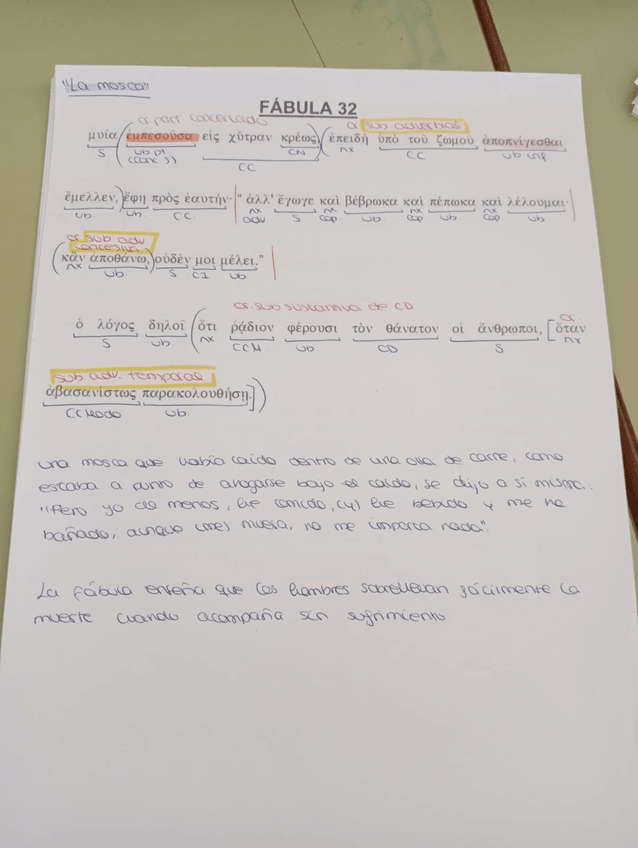 "La mosca"
FÁBULA 32
or part. concertado
or sub adverbial
μυῖα (ἐμπεσοῦσα εἰς χύτραν κρέως) (ἐπειδὴ ὑπὸ τοῦ ζωμοῦ ἀποπνίγεσθαι
S vb pt CN nx CC vb inf
(conc S) CC
ἔμελλεν,) ἔφη πρὸς ἑαυτήν· "ἀλλ' ἔγωγε καὶ βέβρωκα καὶ πέπωκα καὶ λέλουμαι·
vb. vb. CC. nx adv S nx cop vb. nx cop vb. nx cop vb.
or sub. adv
concesiva
(κἂν ἀποθάνω,) οὐδέν μοι μέλει."
nx vb. S CI vb.
or sub sustantiva de CD
ὁ λόγος δηλοῖ (ὅτι ῥᾴδιον φέρουσι τὸν θάνατον οἱ ἄνθρωποι, [ὅταν
S vb nx CCM vb. CD S nx
or
sub adv. temporal
ἀβασανίστως παρακολουθήσῃ.])
CCModo vb.
una mosca que había caído dentro de una olla de carne, como
estaba a punto de ahogarse bajo el caldo, se dijo a sí misma:
"Pero yo al menos, he comido, (y) he bebido y me he
bañado; aunque (me) muera, no me importa nada".
La fábula enseña que los hombres sobrellevan fácilmente la
muerte cuando acompaña sin sufrimiento